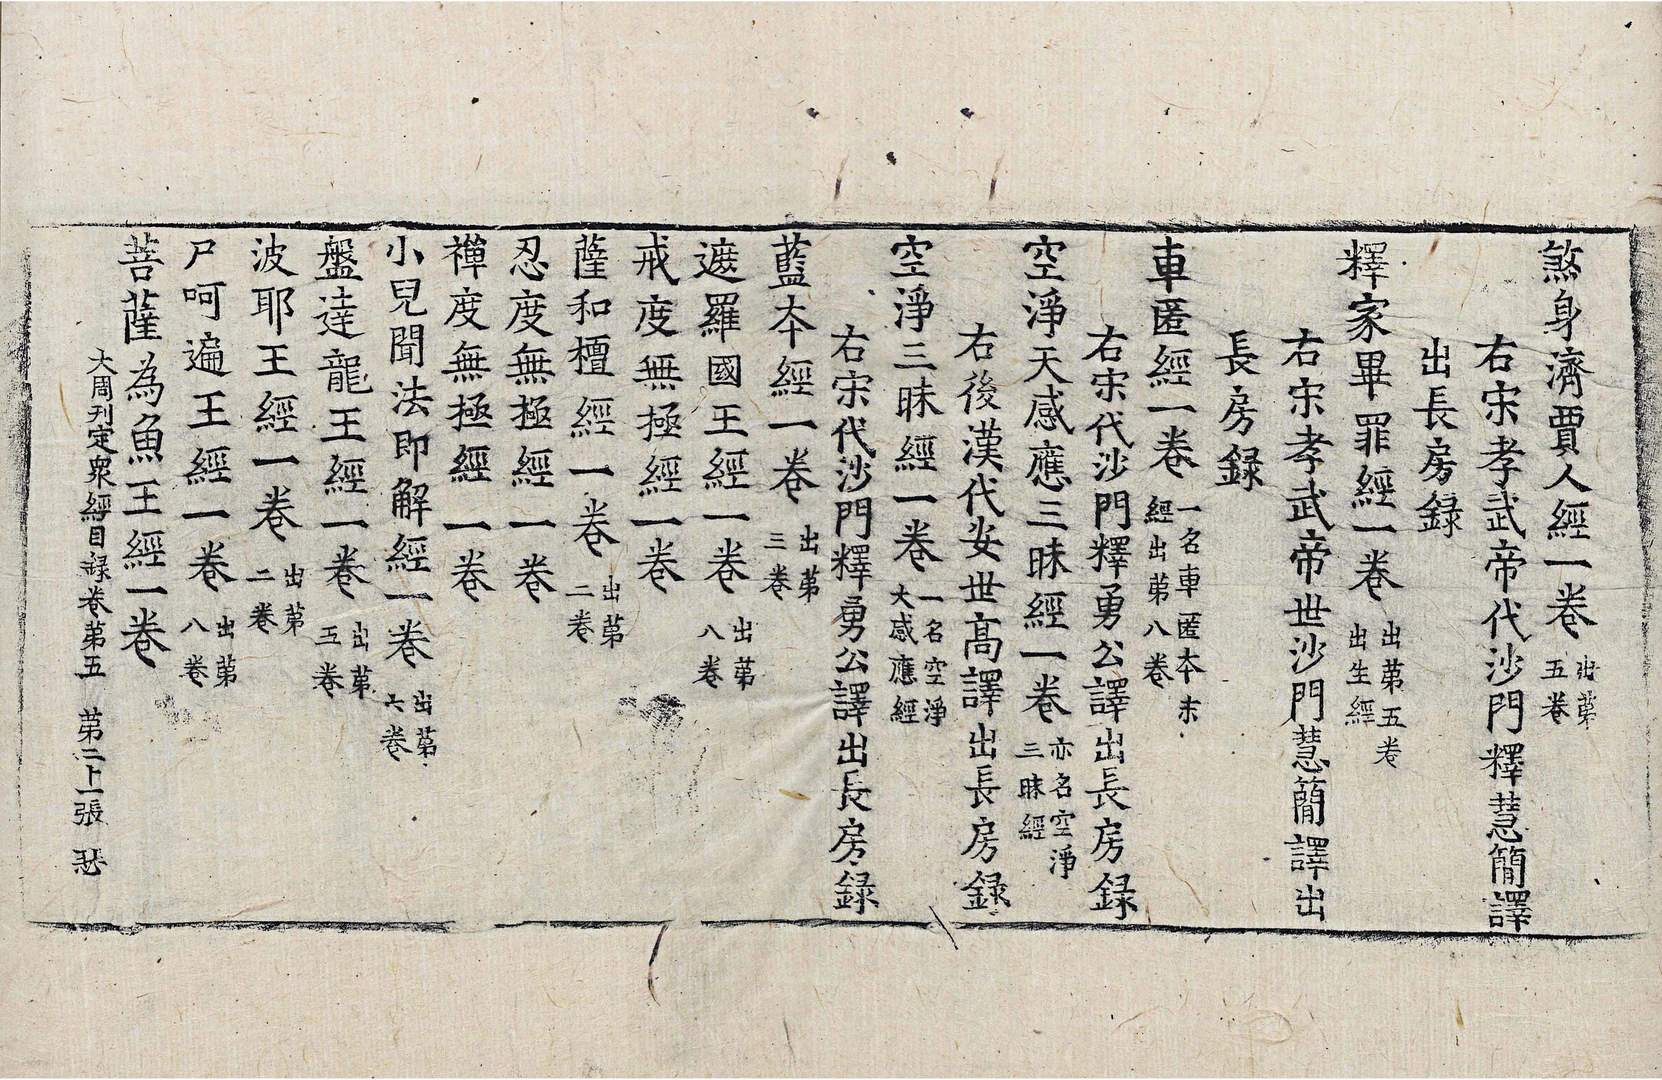 煞身濟賈人經一卷 出第五卷
右宋孝武帝代沙門釋慧簡譯
出長房録
釋家畢罪經一卷 出第五卷出生經
右宋孝武帝世沙門慧簡譯出
長房録
車匿經一卷 一名車匿本末經出第八卷
右宋代沙門釋勇公譯出長房録
空淨天感應三昧經一卷 亦名空淨三昧經
右後漢代安世髙譯出長房録
空淨三昧經一卷 一名空淨大感應經
右宋代沙門釋勇公譯出長房録
藍本經一卷 出第三卷
遮羅國王經一卷 出第八卷
戒度無極經一卷
薩和檀經一卷 出第二卷
忍度無極經一卷
禪度無極經一卷
小兒聞法即解經一卷 出第六卷
盤達龍王經一卷 出第五卷
波耶王經一卷 出第二卷
尸呵遍王經一卷 出第八卷
菩薩為魚王經一卷
大周刊定衆經目録卷第五 第二十一張